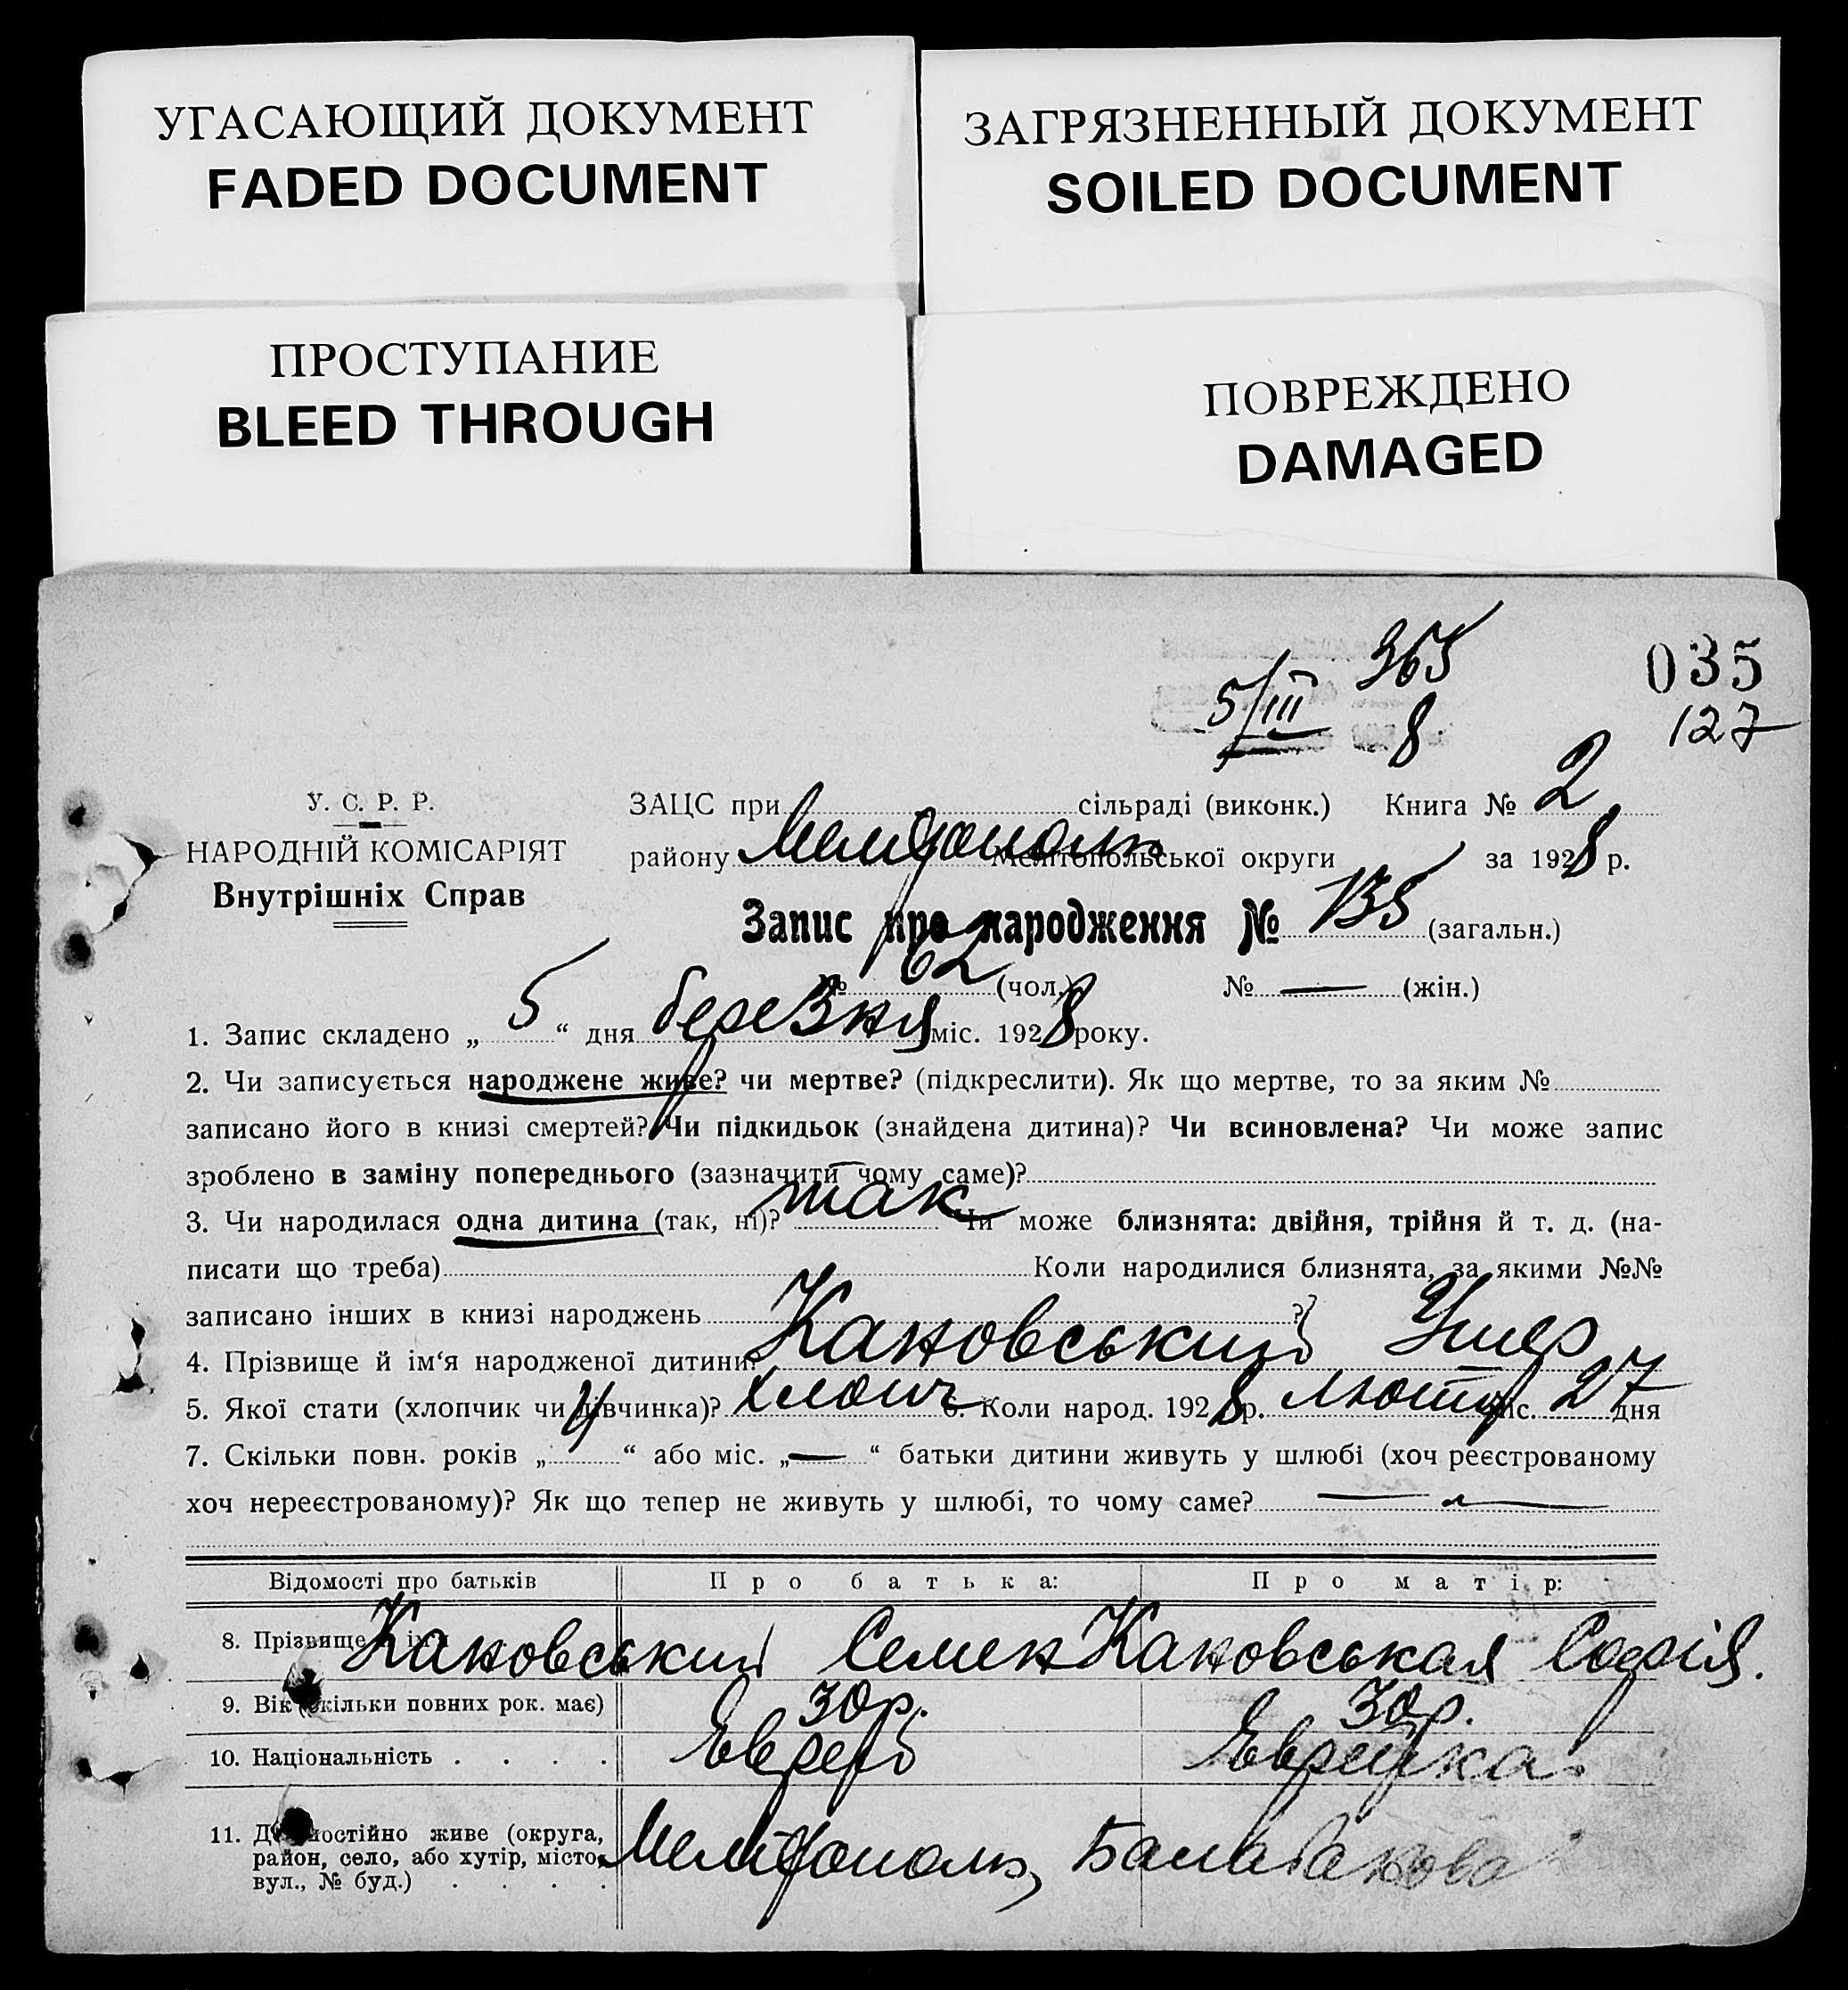 УГАСАЮЩИЙ ДОКУМЕНТ
FADED DOCUMENT
ЗАГРЯЗНЕННЫЙ ДОКУМЕНТ
SOILED DOCUMENT
ПРОСТУПАНИЕ
BLEED THROUGH
ПОВРЕЖДЕНО
DAMAGED
365
035
5/III 8
127
У. С. Р. Р.
НАРОДНІЙ КОМІСАРІЯТ
Внутрішніх Справ
ЗАЦС при сільраді (виконк.) Книга № 2
району Мелітополь Мелітопольської округи за 1928 р.
Запис про народження № 135 (загальн.)
№ 62 (чол.) № — (жін.)
1. Запис складено „ 5 “ дня березня міс. 1928 року.
2. Чи записується народжене живе? чи мертве? (підкреслити). Як що мертве, то за яким №
записано його в книзі смертей? Чи підкидьок (знайдена дитина)? Чи всиновлена? Чи може запис
зроблено в заміну попереднього (зазначити чому саме)?
3. Чи народилася одна дитина (так, ні)? так Чи може близнята: двійня, трійня й т. д. (на-
писати що треба) Коли народилися близнята, за якими №№
записано інших в книзі народжень ?
4. Прізвище й ім‘я народженої дитини? Кановський Ушер
5. Якої стати (хлопчик чи дівчинка)? хлопч 6. Коли народ. 1928 р. лютого міс. 27 дня
7. Скільки повн. років „ 4 “ або міс. „ — “ батьки дитини живуть у шлюбі (хоч реєстрованому
хоч нереєстрованому)? Як що тепер не живуть у шлюбі, то чому саме?
Відомості про батьків Про батька: Про матір:
8. Прізвище й ім'я Кановський Семен Кановськая Софія.
9. Вік (скільки повних рок. має) 30 р. 30 р.
10. Національність . . . . Еврей Еврейка.
11. Де постійно живе (округа,
район, село, або хутір, місто,
вул., № буд.) . . . . Мелітополь,